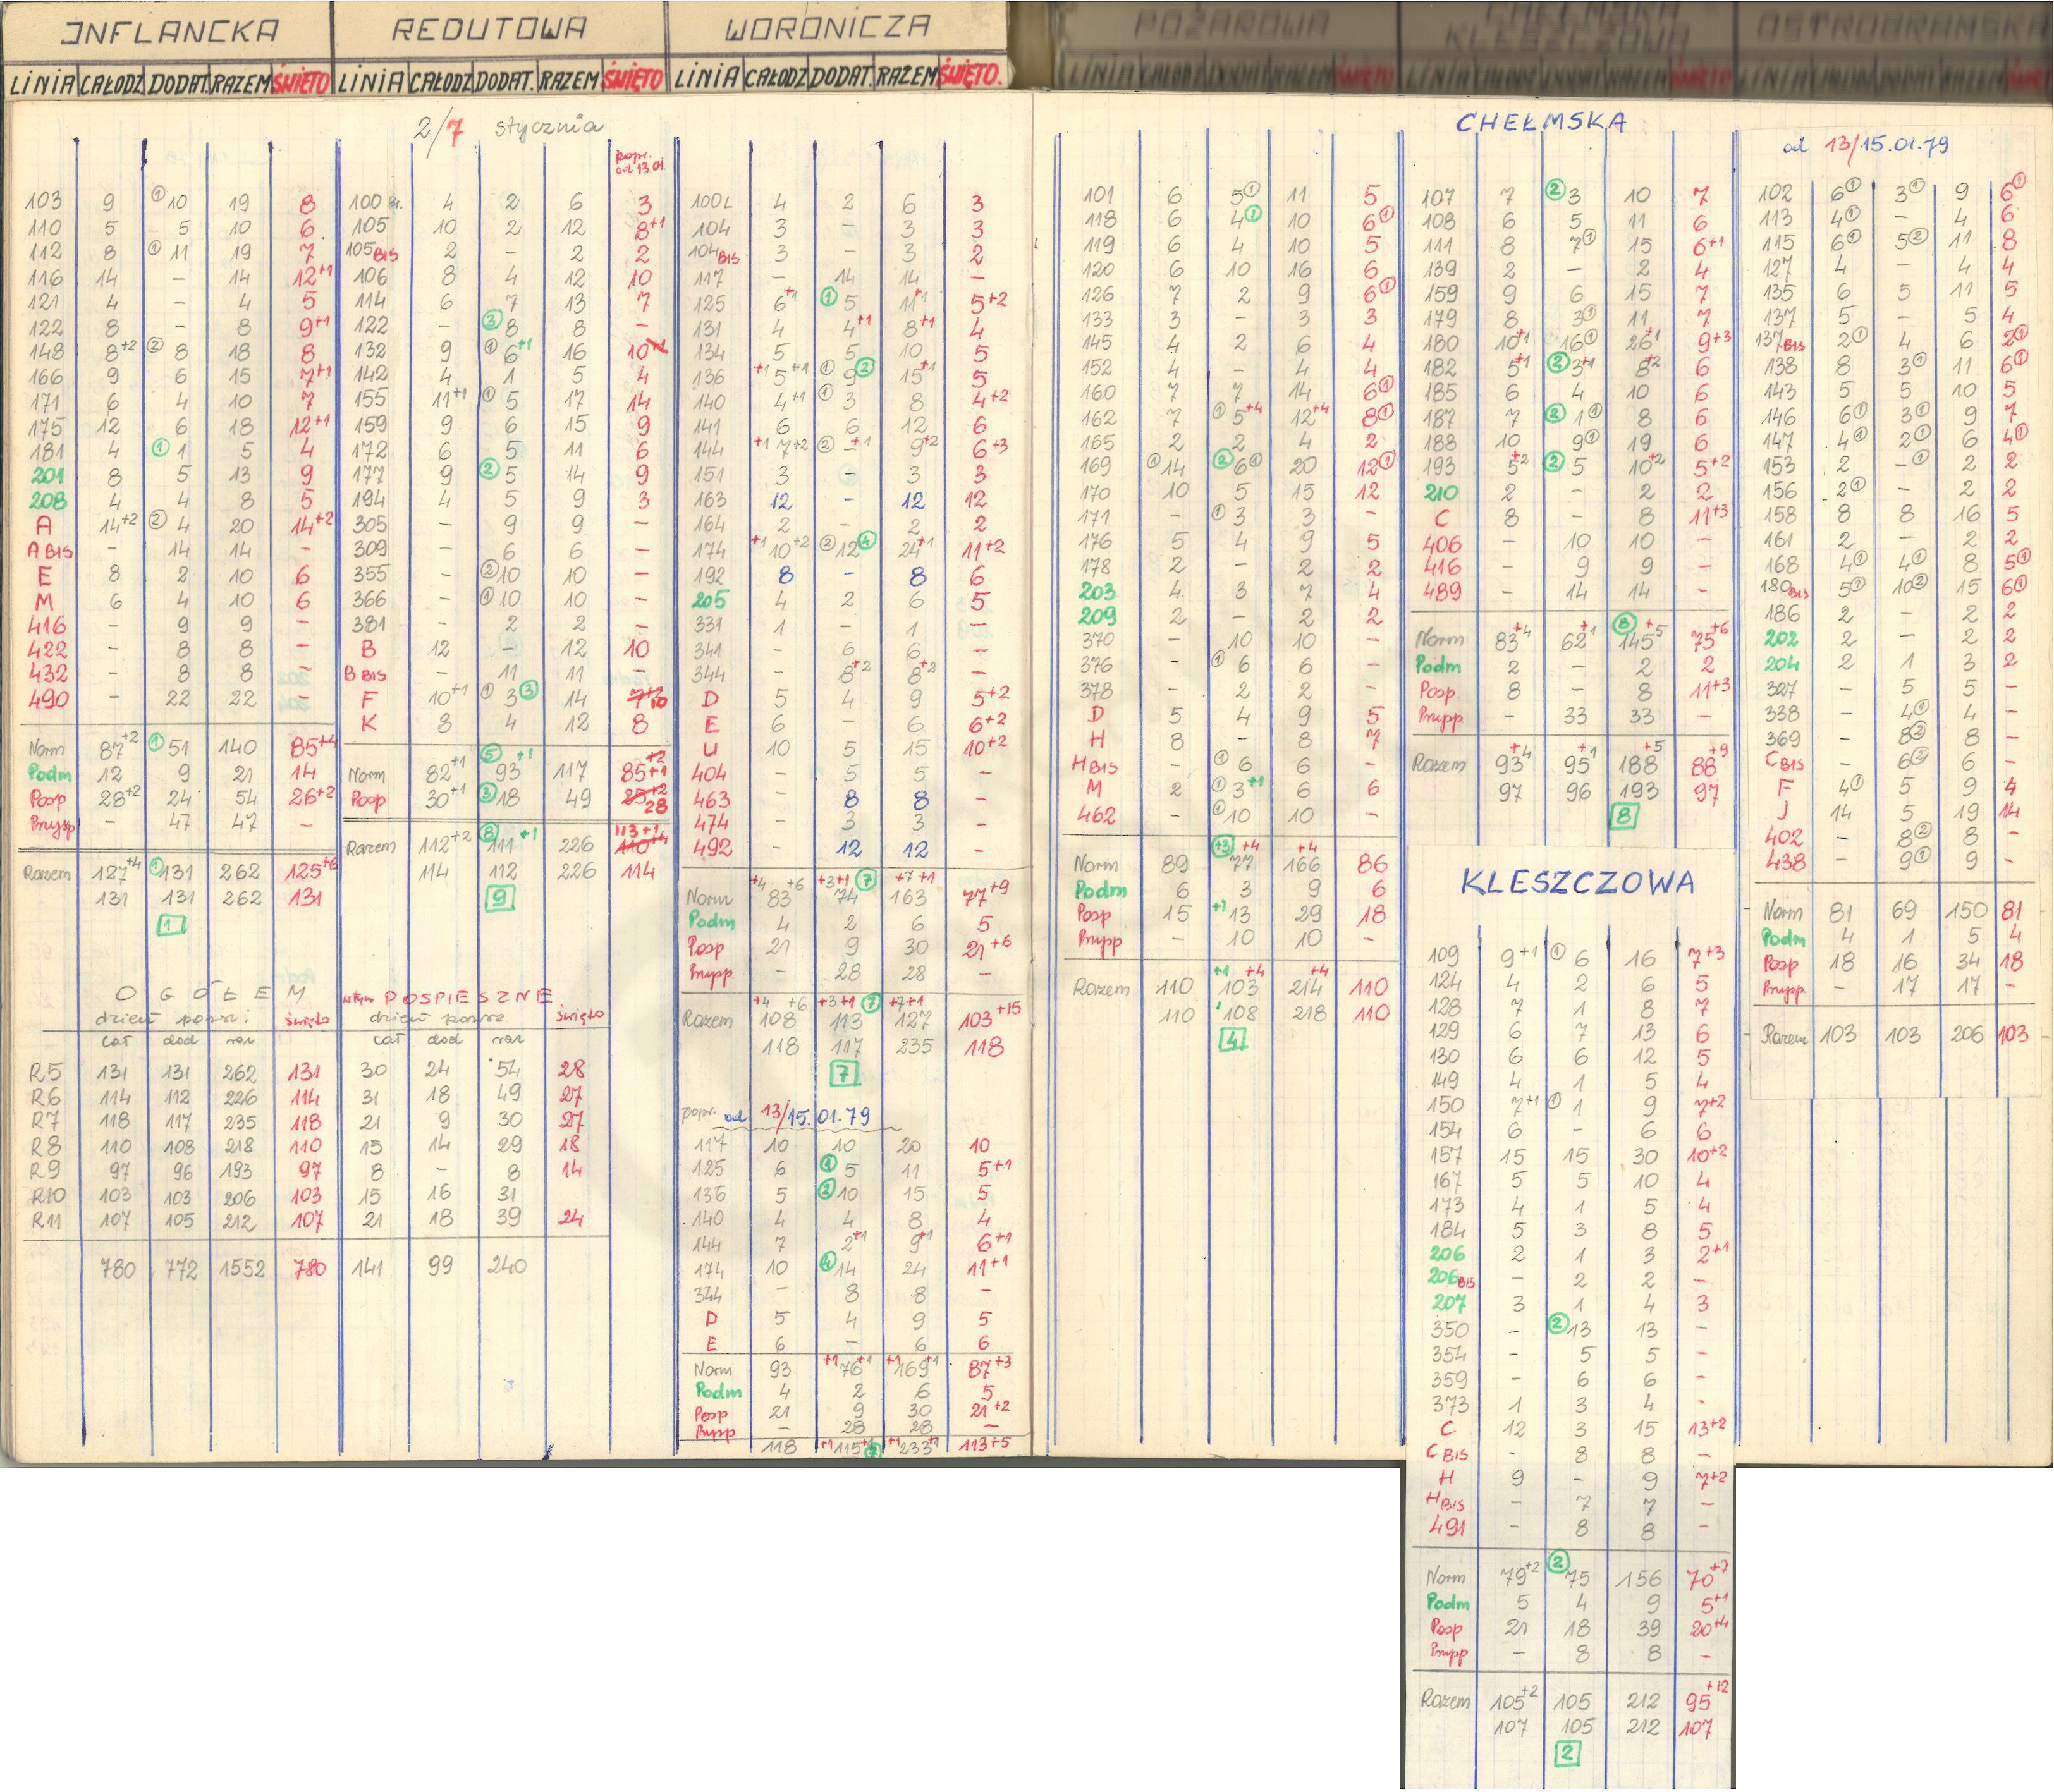 INFLANCKA
LINIA CAŁODZ DODAT. RAZEM ŚWIĘTO
103 9 ①10 19 8
110 5 5 10 6
112 8 ①11 19 7
116 14 – 14 12+1
121 4 – 4 5
122 8 – 8 9+1
148 8+2 ②8 18 8
166 9 6 15 7+1
171 6 4 10 7
175 12 6 18 12+1
181 4 ①1 5 4
201 8 5 13 9
208 4 4 8 5
A 14+2 ②4 20 14+2
A BIS – 14 14 –
E 8 2 10 6
M 6 4 10 6
416 – 9 9 –
422 – 8 8 –
432 – 8 8 –
490 – 22 22 –
Norm 87+2 ①51 140 85+4
Podm 12 9 21 14
Posp 28+2 24 54 26+2
Pnysp – 47 47 –
Razem 127+4 ①131 262 125+6
131 131 262 131
1
OGÓŁEM
dzień powsz: święto
cał dod raz
R5 131 131 262 131
R6 114 112 226 114
R7 118 117 235 118
R8 110 108 218 110
R9 97 96 193 97
R10 103 103 206 103
R11 107 105 212 107
780 772 1552 780
w tym POSPIESZNE
dzień powsz. święto
cał dod raz
30 24 54 28
31 18 49 27
21 9 30 27
15 14 29 18
8 – 8 14
15 16 31
21 18 39 24
141 99 240
REDUTOWA
LINIA CAŁODZ DODAT. RAZEM ŚWIĘTO
2/7 stycznia
popr. od 13.01
100 Br. 4 2 6 3
105 10 2 12 8+1
105 BIS 2 – 2 2
106 8 4 12 10
114 6 7 13 7
122 – ③8 8 –
132 9 ①6+1 16 10+1
142 4 1 5 4
155 11+1 ①5 17 14
159 9 6 15 9
172 6 5 11 6
177 9 ②5 14 9
194 4 5 9 3
305 – 9 9 –
309 – 6 6 –
355 – ②10 10 –
366 – ①10 10 –
381 – 2 2 –
B 12 – 12 10
B BIS – 11 11 –
F 10+1 ①3③ 14 7+2 10
K 8 4 12 8
Norm 82+1 ⑤93+1 117 85+1+2
Posp 30+1 ③18 49 25+2 28
Razem 112+2 ⑧111+1 226 113+1 110+4
114 112 226 114
9
WORONICZA
LINIA CAŁODZ DODAT. RAZEM ŚWIĘTO.
100L 4 2 6 3
104 3 – 3 3
104 BIS 3 – 3 2
117 – 14 14 –
125 6+1 ①5 11+1 5+2
131 4 4+1 8+1 4
134 5 5 10 5
136 +1 5+1 ①9② 15+1 5
140 4+1 ①3 8 4+2
141 6 6 12 6
144 +1 7+2 ②–+1 9+2 6+3
151 3 – 3 3
163 12 – 12 12
164 2 – 2 2
174 +1 10+2 ②12④ 24+1 11+2
192 8 – 8 6
205 4 2 6 5
331 1 – 1 –
341 – 6 6 –
344 – 8+2 8+2 –
D 5 4 9 5+2
E 6 – 6 6+2
U 10 5 15 10+2
404 – 5 5 –
463 – 8 8 –
474 – 3 3 –
492 – 12 12 –
Norm +4 83+6 +3+1 74⑦ 163+7+1 77+9
Podm 4 2 6 5
Posp 21 9 30 21+6
Pnypp. – 28 28 –
Razem +4 108+6 +3+1 113⑦ +7+1 127 103+15
118 117 235 118
7
popr. od 13/15.01.79
117 10 10 20 10
125 6 ①5 11 5+1
136 5 ②10 15 5
140 4 4 8 4
144 7 2+1 9+1 6+1
174 10 ④14 24 11+1
344 – 8 8 –
D 5 4 9 5
E 6 – 6 6
Norm 93 +1 76+1 +1 169+1 87+3
Podm 4 2 6 5
Posp 21 9 30 21+2
Pnypp – 28 28 –
118 +1 115+1⑦ +1 233+1 113+5
POŻAROWA
LINIA CAŁODZ DODAT RAZEM ŚWIĘTO
101 6 5① 11 5
118 6 4① 10 6①
119 6 4 10 5
120 6 10 16 6
126 7 2 9 6①
133 3 – 3 3
145 4 2 6 4
152 4 – 4 4
160 7 7 14 6①
162 7 ①5+4 12+4 8①
165 2 2 4 2
169 ①14 ②6① 20 12①
170 10 5 15 12
171 – ①3 3 –
176 5 4 9 5
178 2 – 2 2
203 4 3 7 4
209 2 – 2 2
370 – 10 10 –
376 – ①6 6 –
378 – 2 2 –
D 5 4 9 5
H 8 – 8 7
H BIS – ①6 6 –
M 2 ①3+1 6 6
462 – ①10 10 –
Norm 89 +3 77+4 166+4 86
Podm 6 3 9 6
Posp 15 +1 13 29 18
Pnypp – 10 10 –
Razem 110 +1 103+4 214+4 110
110 108 218 110
4
CHEŁMSKA
KLESZCZOWA
LINIA CAŁODZ DODAT RAZEM ŚWIĘTO
CHEŁMSKA
107 7 ②3 10 7
108 6 5 11 6
111 8 7① 15 6+1
139 2 – 2 4
159 9 6 15 7
179 8 3① 11 7
180 10+1 16① 26+1 9+3
182 5+1 ②3+1 8+2 6
185 6 4 10 6
187 7 ②1① 8 6
188 10 9① 19 6
193 5+2 ②5 10+2 5+2
210 2 – 2 2
C 8 – 8 11+3
406 – 10 10 –
416 – 9 9 –
489 – 14 14 –
Norm 83+4 62+1 ⑧145+5 75+6
Podm 2 – 2 2
Posp. 8 – 8 11+3
Pnypp. – 33 33 –
Razem 93+4 95+1 188+5 88+9
97 96 193 97
8
KLESZCZOWA
109 9+1 ①6 16 7+3
124 4 2 6 5
128 7 1 8 7
129 6 7 13 6
130 6 6 12 5
149 4 1 5 4
150 7+1 ①1 9 7+2
154 6 – 6 6
157 15 15 30 10+2
167 5 5 10 4
173 4 1 5 4
184 5 3 8 5
206 2 1 3 2+1
206 BIS – 2 2 –
207 3 1 4 3
350 – ②13 13 –
354 – 5 5 –
359 – 6 6 –
373 1 3 4 –
C 12 3 15 13+2
C BIS – 8 8 –
H 9 – 9 7+2
H BIS – 7 7 –
491 – 8 8 –
Norm 79+2 ②75 156 70+7
Podm 5 4 9 5+1
Posp 21 18 39 20+4
Pnypp – 8 8 –
Razem 105+2 105 212 95+12
107 105 212 107
2
OSTROBRAMSKA
LINIA CAŁODZ DODAT RAZEM
od 13/15.01.79
102 6① 3① 9 6①
113 4① – 4 6
115 6① 5② 11 8
127 4 – 4 4
135 6 5 11 5
137 5 – 5 4
137 BIS 2① 4 6 2①
138 8 3① 11 6①
143 5 5 10 5
146 6① 3① 9 7
147 4① 2① 6 4①
153 2 –① 2 2
156 2① – 2 2
158 8 8 16 5
161 2 – 2 2
168 4① 4① 8 5①
180 BIS 5① 10② 15 6①
186 2 – 2 2
202 2 – 2 2
204 2 1 3 2
327 – 5 5 –
338 – 4① 4 –
369 – 8② 8 –
C BIS – 6② 6 –
F 4① 5 9 4
J 14 5 19 14
402 – 8② 8 –
438 – 9① 9 –
Norm 81 69 150 81
Podm 4 1 5 4
Posp 18 16 34 18
Pnypp – 17 17 –
Razem 103 103 206 103